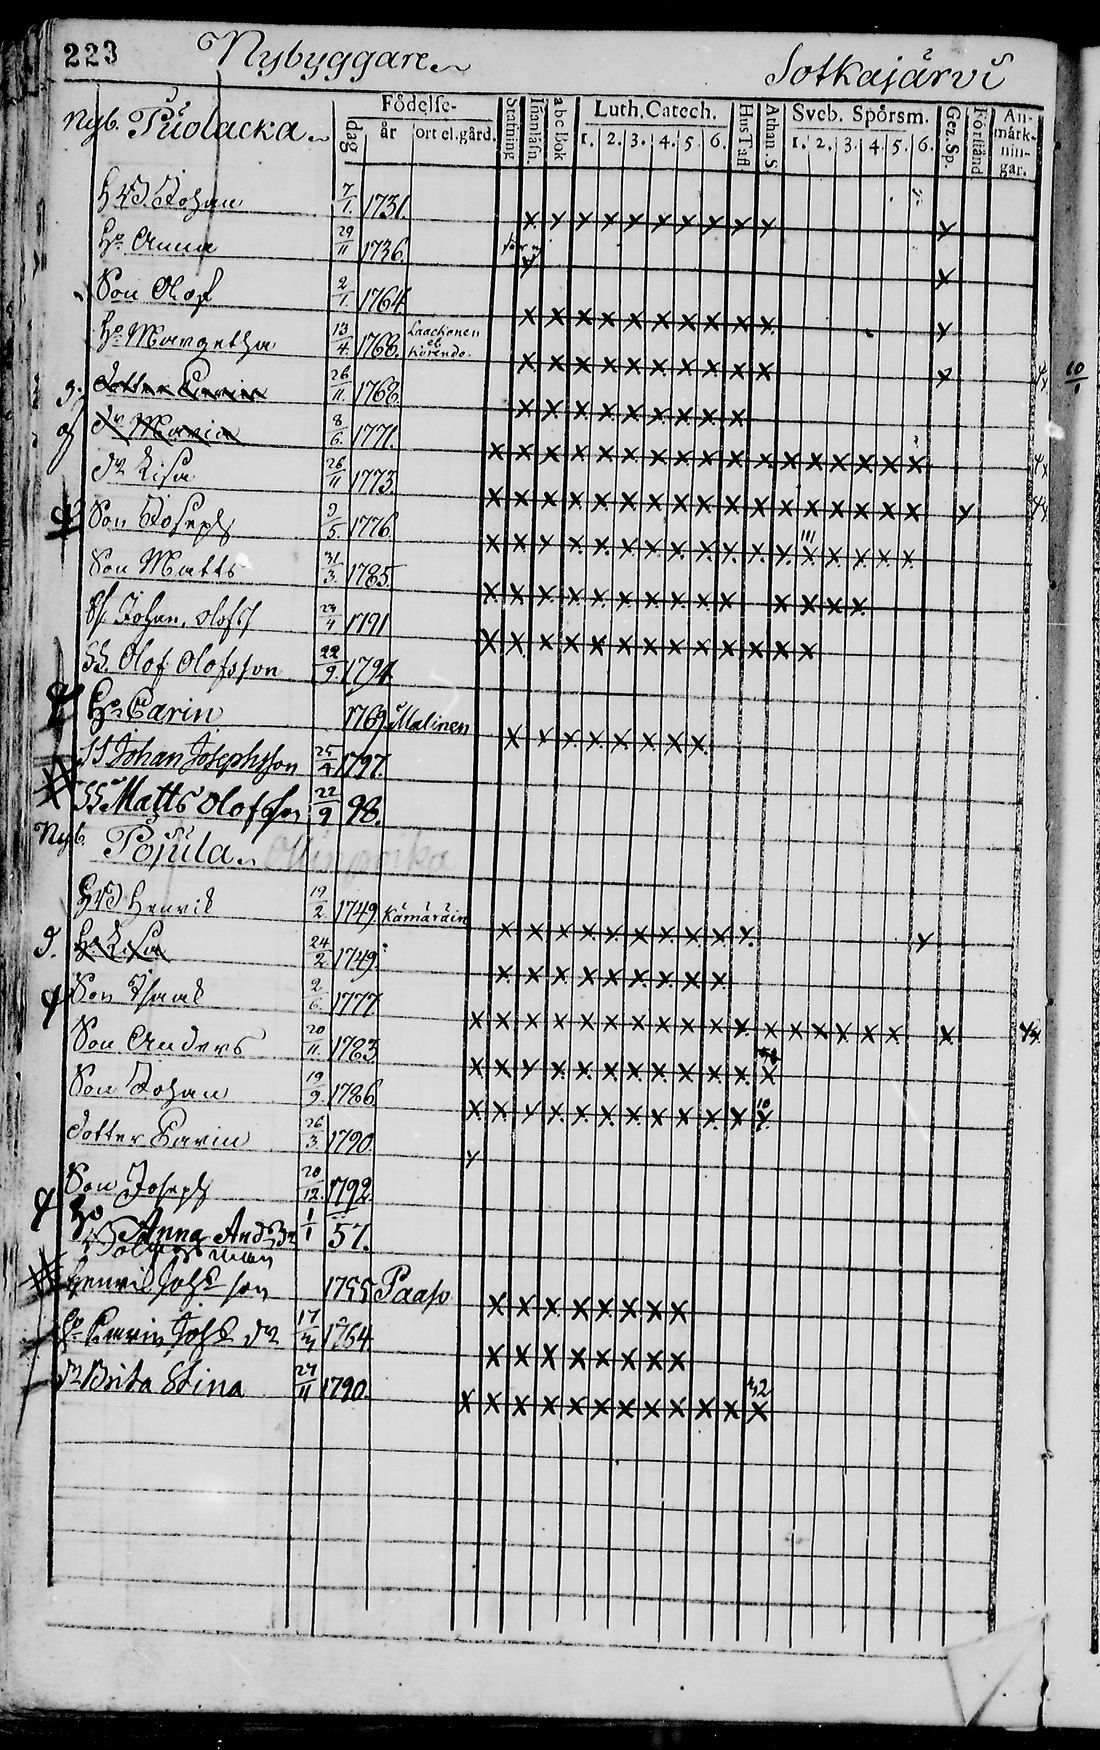 223 Nybyggare Sotkajärvi
Nyb. Puolacka Födelse- Stafning Innanläsn. abc Bok Luth. Catech. Hus Tafl Athan. S. Sveb. Spörsm. Gez. Sp. Förstånd An-märk-nin-gar.
dag år ort el. gård. 1. 2. 3. 4. 5. 6. 1. 2. 3. 4. 5. 6.
Johan 7/1. 1731. x y x x x x x x x y y
Ho Anna 29/11 1736. y y
Son Olof 2/1. 1764. x x x x x x x x x x y
Ho Margetha 13/4. 1768. Laackonen et Kurendo. x x x x x x x x x x y
Dotter Carin 26/11. 1768. x x x x x x x x x
Dr Maria 8/6. 1771. x x x x x x x x x x x x x x x x x
Dr Lisa 26/11 1773. x x x x x x x x x x x x x x x x x y
Son Joseph 9/5. 1776. x x y x x x x x x x x y x x x x x
Son Matts 31/3. 1785. x x x x x x x x x x x x x x
Johan. Olofs 1791 x x x x x x x x x x x x x
SS. Olof Olofsson 22/9. 1794.
Ho Carin 1769. Malinen x y y x x x x x
SS Johan Josephsson 1797.
SS Matts Olofsson 22/9 98.
Nyb. Pojula
Henrik 19/2. 1749. Kämäräin x x x x x x x x x y. y
Ho Lisa 24/2. 1749. x x x x x x x x x
Son Isaak 2/6. 1777 x x x x x x x x x x x x x x x x x x
Son Anders 20/11. 1783. x x y x x x x x x x x x
Son Johan 19/9. 1786 x x y x x x x x x x x 10 y
Dotter Carin 26/3. 1790. y
Son Joseph 20/12. 1792
Ho Anna And. Dr 1/1 57.
Bolagsman
Henric Johs son 1755 Paaso x x x x x x x x
Ho Carin Johs Dr 17/3 1764. x x x x x x x x
Dr Brita Stina 27/11 1790. x x x x x x x x x x x x